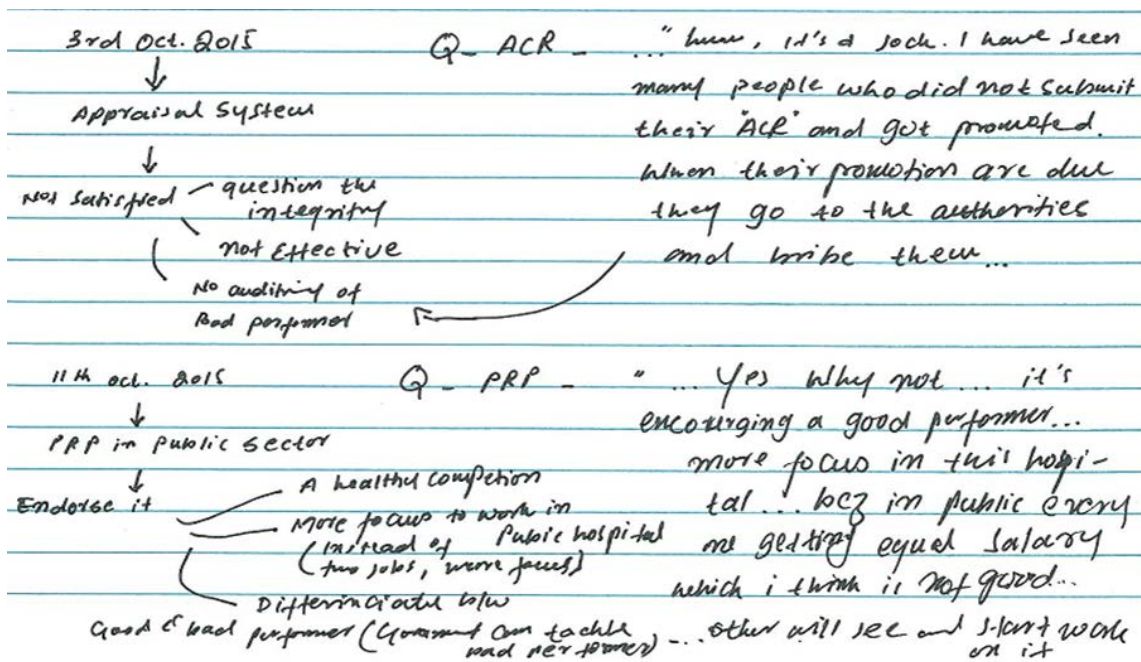 3rd Oct. 2015
Appraisal System
Not satisfied
question the
integrity
not Effective
No auditing of
Bad performer
Q - ACR - ... " hmm, it's a jock. I have seen
many people who did not submit
their "ACR" and got promoted.
when their promotion are due
they go to the authorities
and bribe them...
11th oct. 2015
PRP in public sector
Endorse it
A healthy Competion
More focus to work in
Public hospital
(instead of
two jobs, more focus)
Differinciate b/w
Good & bad performer (Government Can tackle
bad performer)
Q - PRP - " ... Yes why not ... it's
encourging a good performer...
more focus in this hospi-
tal ... bcz in public every
one getting equal salary
which i think is not good...
... other will see and start work
on it